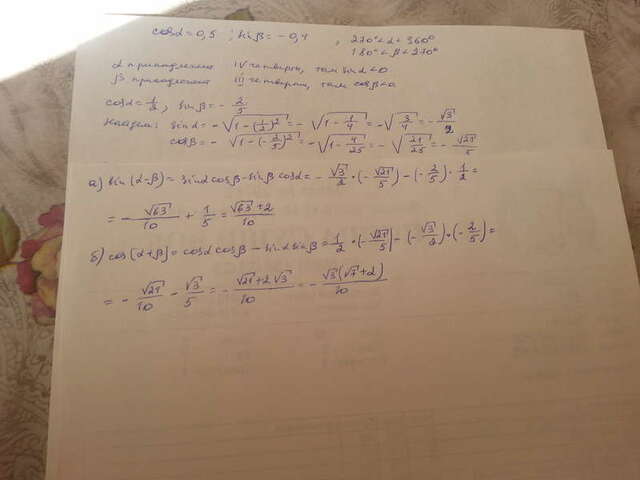 cosα = 0,5 ; sinβ = - 0,4 , 270° < α < 360°
180° < β < 270°
α принадлежит IV четверти, там sinα < 0
β принадлежит III четверти, там cosβ < 0
cosα = 1/2 , sinβ = - 2/5
Найдем: sinα = - √(1 - (1/2)²) = - √(1 - 1/4) = - √(3/4) = - √3/2
cosβ = - √(1 - (- 2/5)²) = - √(1 - 4/25) = - √(21/25) = - √21/5
а) sin(α - β) = sinα cosβ - sinβ cosα = - √3/2 · (- √21/5) - (- 2/5) · 1/2 =
= - √63/10 + 1/5 = √63 + 2/10
б) cos(α + β) = cosα cosβ - sinα sinβ = 1/2 · (- √21/5) - (- √3/2) · (- 2/5) =
= - √21/10 - √3/5 = - √21 + 2√3/10 = - √3(√7 + 2)/10